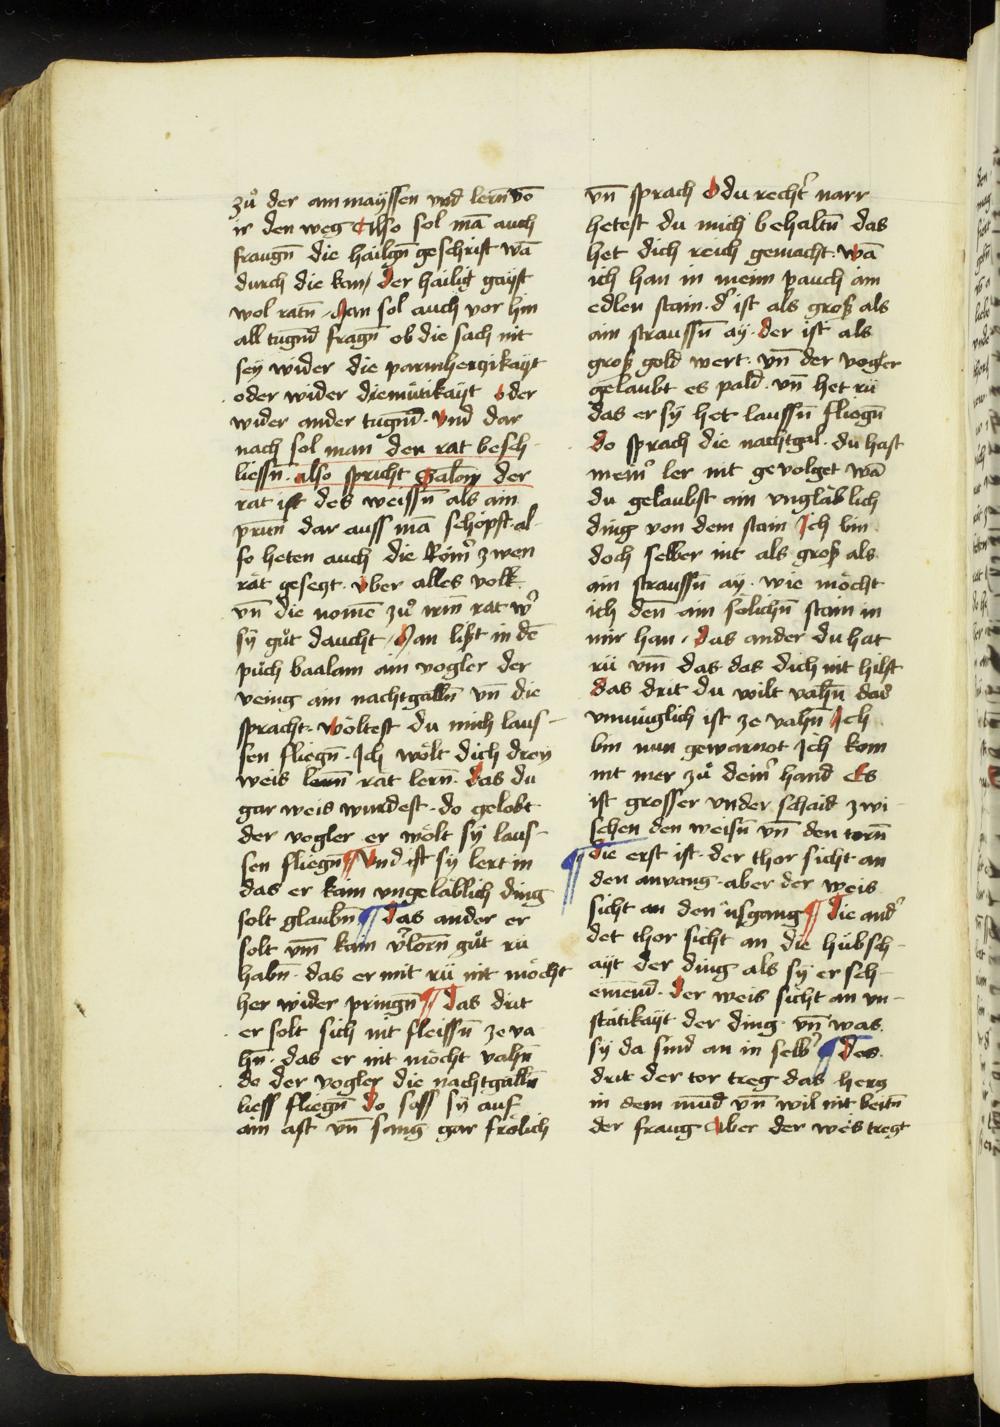 zů der ammayssen vnd lern̄ vō
ir den weg Also sol mā auch
fraugn̄ die hailgn̄ geschrift wā
durch die kan der hailig gayst
wol ratn̄ Man sol auch vor hin
all tugnd̄ fragn̄ ob die sach nit
sey wider die parmhertzikayt
oder wider diemütikayt oder
wider ander tugnd̄. Vnd dar
nach sol man den rat besch-
liessn̄. also spricht Salom̄ der
rat ist des weissn̄ als ain
prun̄ dar auss mā schöpft. al-
so heten auch die Röm̉ zwen
rät gesetzt. über alles volk
vn̄ die nomē zů irm̄ rat w̉
sÿ gůt daucht Man lißt in dē
půch baalam ain vogler der
veing ain nachtgalln̄ vn̄ die
spracht. wöltest du mich laus-
sen fliegn̄. Ich wölt dich drey
weis lern̄ rät lern̄. das du
gar weis wurdest. do gelobt
der vogler er wölt sÿ laus-
sen fliegn̄ ¶ Vnd ist sÿ lert in
das er kain vngeläblich ding
solt glaubn̄ ¶ Das ander er
solt vm̄ kain v̉lorn̄ gůt rü
habn̄. das er mit rü nit möcht
her wider pringn̄ ¶ Das drit
er solt sich nit fleissn̄ ze va
hn̄. das er nit möcht vahn̄
do der vogler die nachtgalln̄
liess fliegn̄ Do sass sÿ auf
ain ast vn̄ sang gar frölich
vn̄ sprach O du recht̉ narr
hetest du mich behaltn̄ das
het dich reich gemacht. wā
ich han in meim pauch ain
edlen stain. d̉ ist als groß als
ain straussn̄ ay. der ist als
groß gold wert. vn̄ der vogler
gelaubt es pald. vn̄ het rü
das er sÿ het laussn̄ fliegn̄
Do sprach die nachtgal. du hast
mein̉ ler nit gevolget wā
du gelaubst ain vngläblich
ding von dem stain Ich bin
doch selber nit als groß als
ain straussn̄ ay. wie möcht
ich den̄ ain sölichn̄ stain in
mir han. Das ander du hat
rü vm̄ das. das dich nit hilft
Das drit du wilt vahn̄ das
vnmüglich ist ze vahn̄ Ich
bin nun gewarnot Ich kom
nit mer zů dein̉ hand Es
ist grosser vnder schaid zwi-
schen den weisn̄ vn̄ den torn̄
¶ Die erst ist. der thor sicht an
den anvang. aber der weis
sicht an den usgang ¶ Die and̉
det thor sicht an die hübsch-
ayt der ding als sÿ er sch-
einend̄. Der weis sicht an vn-
stätikayt der ding. vn̄ was
sÿ da sind an in selb̉ ¶ Das
drit der tor treg das hertz
in dem mūd vn̄ wil nit beitn̄
der fraug Aber der weis tregt